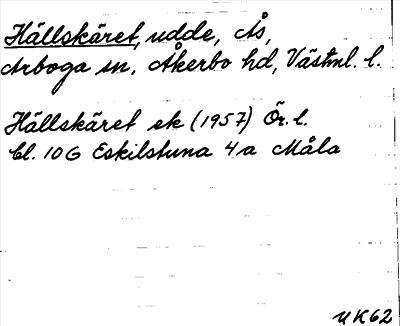 Hällskäret, udde, Ås,
Arboga sn, Åkerbo hd, Västml. l.
Hällskäret ek (1957) Ör. l.
bl. 10G Eskilstuna 4a Måla
UK62